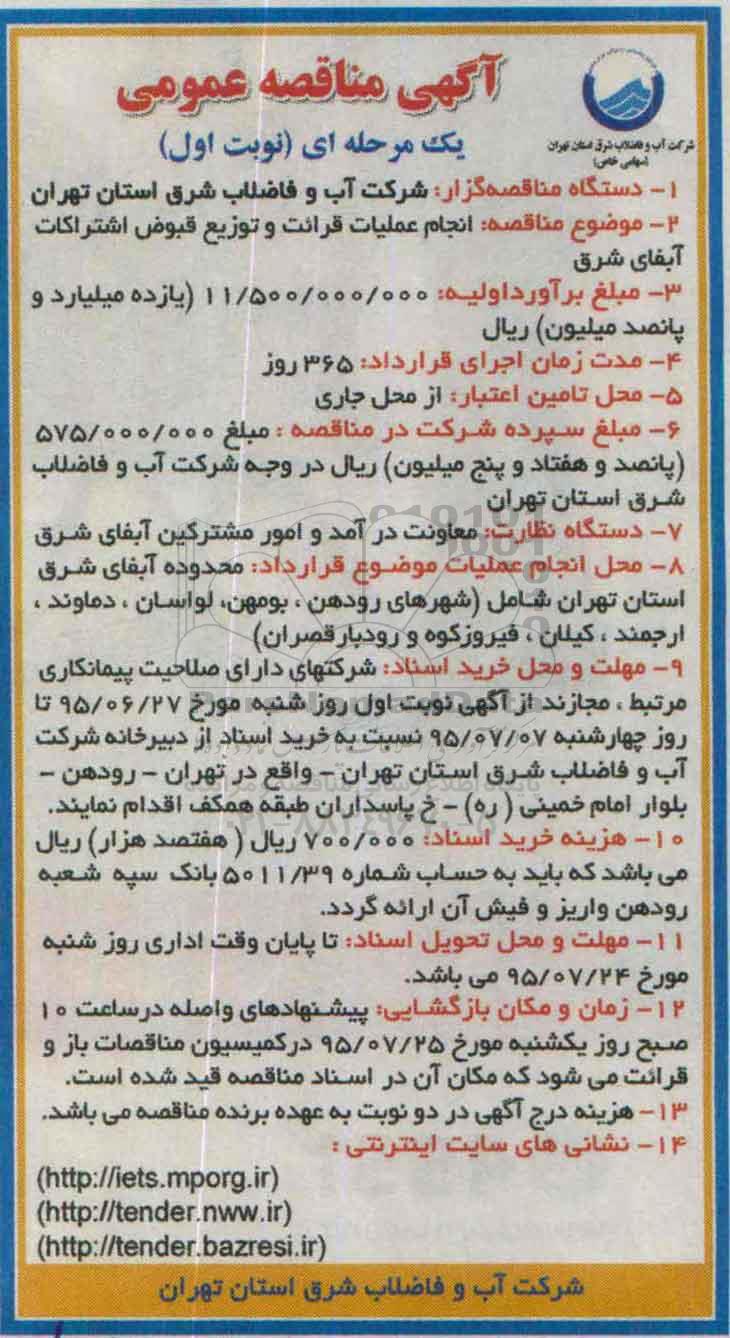 آگهی مناقصه عمومی
یک مرحله ای (نوبت اول)
شرکت آب و فاضلاب شرق استان تهران
(سهامی خاص)
۱- دستگاه مناقصه‌گزار: شرکت آب و فاضلاب شرق استان تهران
۲- موضوع مناقصه: انجام عملیات قرائت و توزیع قبوض اشتراکات
آبفای شرق
۳- مبلغ برآورداولیه: ۱۱/۵۰۰/۰۰۰/۰۰۰ (یازده میلیارد و
پانصد میلیون) ریال
۴- مدت زمان اجرای قرارداد: ۳۶۵ روز
۵- محل تامین اعتبار: از محل جاری
۶- مبلغ سپرده شرکت در مناقصه : مبلغ ۵۷۵/۰۰۰/۰۰۰
(پانصد و هفتاد و پنج میلیون) ریال در وجه شرکت آب و فاضلاب
شرق استان تهران
۷- دستگاه نظارت: معاونت در آمد و امور مشترکین آبفای شرق
۸- محل انجام عملیات موضوع قرارداد: محدوده آبفای شرق
استان تهران شامل (شهرهای رودهن ، بومهن، لواسان ، دماوند ،
ارجمند ، کیلان ، فیروزکوه و رودبارقصران)
۹- مهلت و محل خرید اسناد: شرکتهای دارای صلاحیت پیمانکاری
مرتبط ، مجازند از آگهی نوبت اول روز شنبه مورخ ۹۵/۰۶/۲۷ تا
روز چهارشنبه ۹۵/۰۷/۰۷ نسبت به خرید اسناد از دبیرخانه شرکت
آب و فاضلاب شرق استان تهران - واقع در تهران - رودهن -
بلوار امام خمینی ( ره) - خ پاسداران طبقه همکف اقدام نمایند.
۱۰- هزینه خرید اسناد: ۷۰۰/۰۰۰ ریال ( هفتصد هزار) ریال
می باشد که باید به حساب شماره ۵۰۱۱/۳۹ بانک سپه شعبه
رودهن واریز و فیش آن ارائه گردد.
۱۱- مهلت و محل تحویل اسناد: تا پایان وقت اداری روز شنبه
مورخ ۹۵/۰۷/۲۴ می باشد.
۱۲- زمان و مکان بازگشایی: پیشنهادهای واصله درساعت ۱۰
صبح روز یکشنبه مورخ ۹۵/۰۷/۲۵ درکمیسیون مناقصات باز و
قرائت می شود که مکان آن در اسناد مناقصه قید شده است.
۱۳- هزینه درج آگهی در دو نوبت به عهده برنده مناقصه می باشد.
۱۴- نشانی های سایت اینترنتی :
(http://iets.mporg.ir)
(http://tender.nww.ir)
(http://tender.bazresi.ir)
شرکت آب و فاضلاب شرق استان تهران